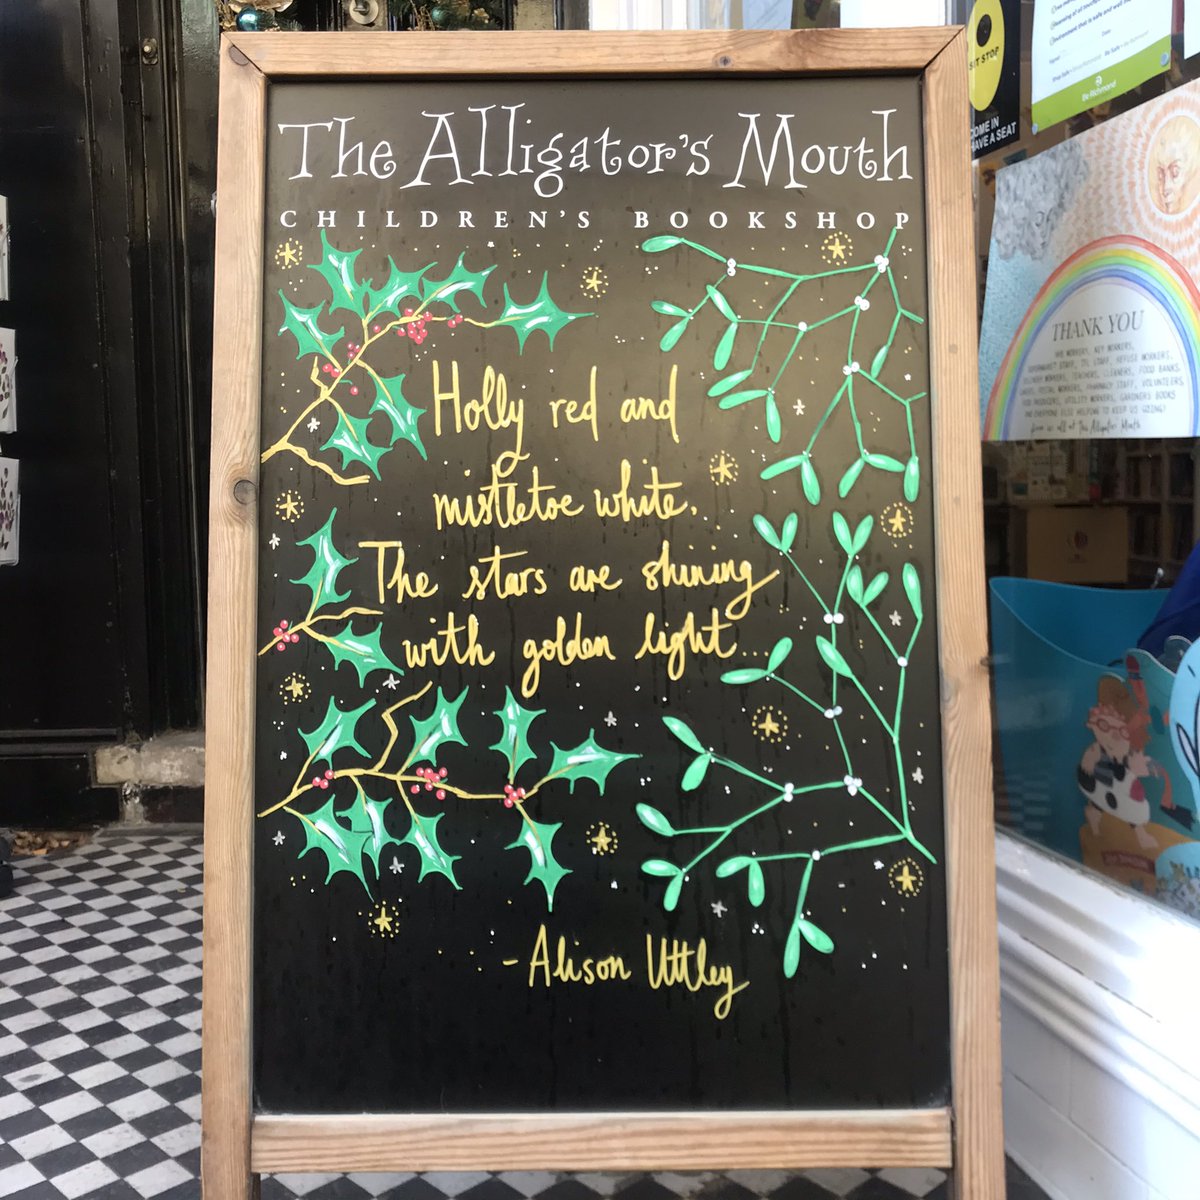 The Alligator's Mouth
CHILDREN'S BOOKSHOP
Holly red and
mistletoe white.
The stars are shining
with golden light...
- Alison Uttley
SIT STOP
COME IN
HAVE A SEAT
Be Richmond
THANK YOU
KEY WORKERS,
SUPERMARKET STAFF, TFL STAFF, REFUSE WORKERS,
DELIVERY WORKERS, TEACHERS, CLEANERS, FOOD BANKS,
POSTAL WORKERS, PHARMACY STAFF, VOLUNTEERS,
FOOD PRODUCERS, UTILITY WORKERS, GARDNERS BOOKS
AND EVERYONE ELSE HELPING TO KEEP US GOING!
from us all at The Alligator's Mouth